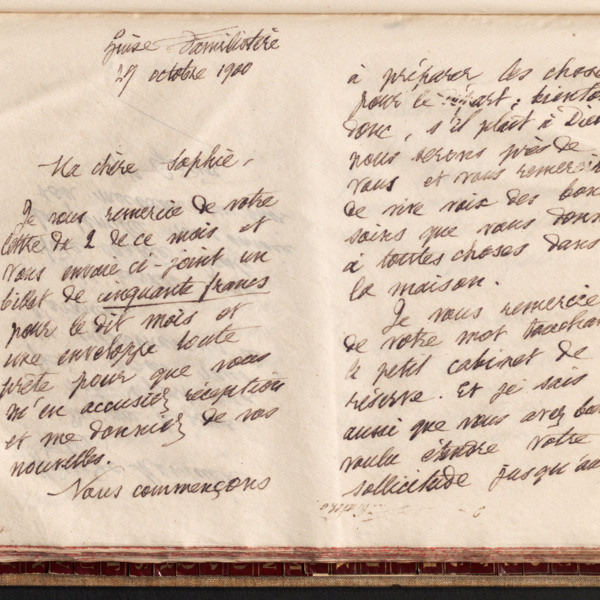 Guise Familistère
27 octobre 1900
Ma chère Sophie,
Je vous remercie de votre
lettre de 2 de ce mois et
vous envoie ci-joint un
billet de cinquante francs
pour le dit mois et
une enveloppe toute
prête pour que vous
m'en accusiez réception
et me donniez de vos
nouvelles.
Nous commençons
à préparer les chose
pour le départ ; biento
donc, s'il plaît à Dieu
nous serons près de
vous et vous remerci
de vive voix des bon
soins que vous donn
à toutes choses dans
la maison.
Je vous remercie
de votre mot touchan
le petit cabinet de
réserve. Et je sais
aussi que vous avez bi
voulu étendre votre
sollicitude jusqu'au